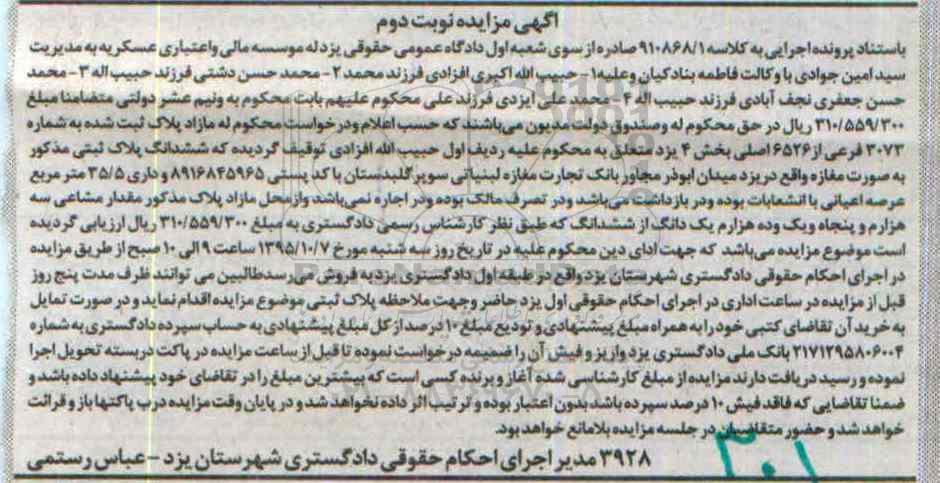 آگهی مزایده نوبت دوم
باستناد پرونده اجرایی به کلاسه ۹۱۰۸۶۸/۱ صادره از سوی شعبه اول دادگاه عمومی حقوقی یزد له موسسه مالی واعتباری عسکریه به مدیریت
سید امین جوادی با وکالت فاطمه بنادکیان وعلیه ۱- حبیب الله اکبری افزادی فرزند محمد ۲- محمد حسن دشتی فرزند حبیب اله ۳- محمد
حسن جعفری نجف آبادی فرزند حبیب اله ۴- محمد علی ایزدی فرزند علی محکوم علیهم بابت محکوم به ونیم عشر دولتی متضامنا مبلغ
۳۱۰/۵۵۹/۳۰۰ ریال در حق محکوم له وصندوق دولت مدیون می‌باشند که حسب اعلام ودرخواست محکوم له مازاد پلاک ثبت شده به شماره
۳۰۷۳ فرعی از ۶۵۲۶ اصلی بخش ۴ یزد متعلق به محکوم علیه ردیف اول حبیب الله افزادی توقیف گردیده که ششدانگ پلاک ثبتی مذکور
به صورت مغازه واقع در یزد میدان ابوذر مجاور بانک تجارت مغازه لبنیاتی سوپر گلبدستان با کد پستی ۸۹۱۶۸۴۵۹۶۵ و داری ۳۵/۵ متر مربع
عرصه اعیانی با انشعابات بوده ودر بازداشت می‌باشد ودر تصرف مالک بوده ودر اجاره نمی‌باشد وازمحل مازاد پلاک مذکور مقدار مشاعی سه
هزارم و پنجاه ویک وده هزارم یک دانگ از ششدانگ که طبق نظر کارشناس رسمی دادگستری به مبلغ ۳۱۰/۵۵۹/۳۰۰ ریال ارزیابی گردیده
است موضوع مزایده می‌باشد که جهت ادای دین محکوم علیه در تاریخ روز سه شنبه مورخ ۱۳۹۵/۱۰/۷ ساعت ۹ الی ۱۰ صبح از طریق مزایده
در اجرای احکام حقوقی دادگستری شهرستان یزد واقع در طبقه اول دادگستری یزد به فروش می‌رسد طالبین می توانند ظرف مدت پنج روز
قبل از مزایده در ساعت اداری در اجرای احکام حقوقی اول یزد حاضر وجهت ملاحظه پلاک ثبتی موضوع مزایده اقدام نماید و در صورت تمایل
به خرید آن تقاضای کتبی خود را به همراه مبلغ پیشنهادی و تودیع مبلغ ۱۰ درصد از کل مبلغ پیشنهادی به حساب سپرده دادگستری به شماره
۲۱۷۱۲۹۵۸۰۶۰۰۴ بانک ملی دادگستری یزد واریز و فیش آن را ضمیمه درخواست نموده تا قبل از ساعت مزایده در پاکت دربسته تحویل اجرا
نموده و رسید دریافت دارند مزایده از مبلغ کارشناسی شده آغاز و برنده کسی است که بیشترین مبلغ را در تقاضای خود پیشنهاد داده باشد و
ضمنا تقاضایی که فاقد فیش ۱۰ درصد سپرده باشد بدون اعتبار بوده و ترتیب اثر داده نخواهد شد و در پایان وقت مزایده درب پاکتها باز و قرائت
خواهد شد و حضور متقاضیان در جلسه مزایده بلامانع خواهد بود.
۳۹۲۸ مدیر اجرای احکام حقوقی دادگستری شهرستان یزد - عباس رستمی
۳۰۱